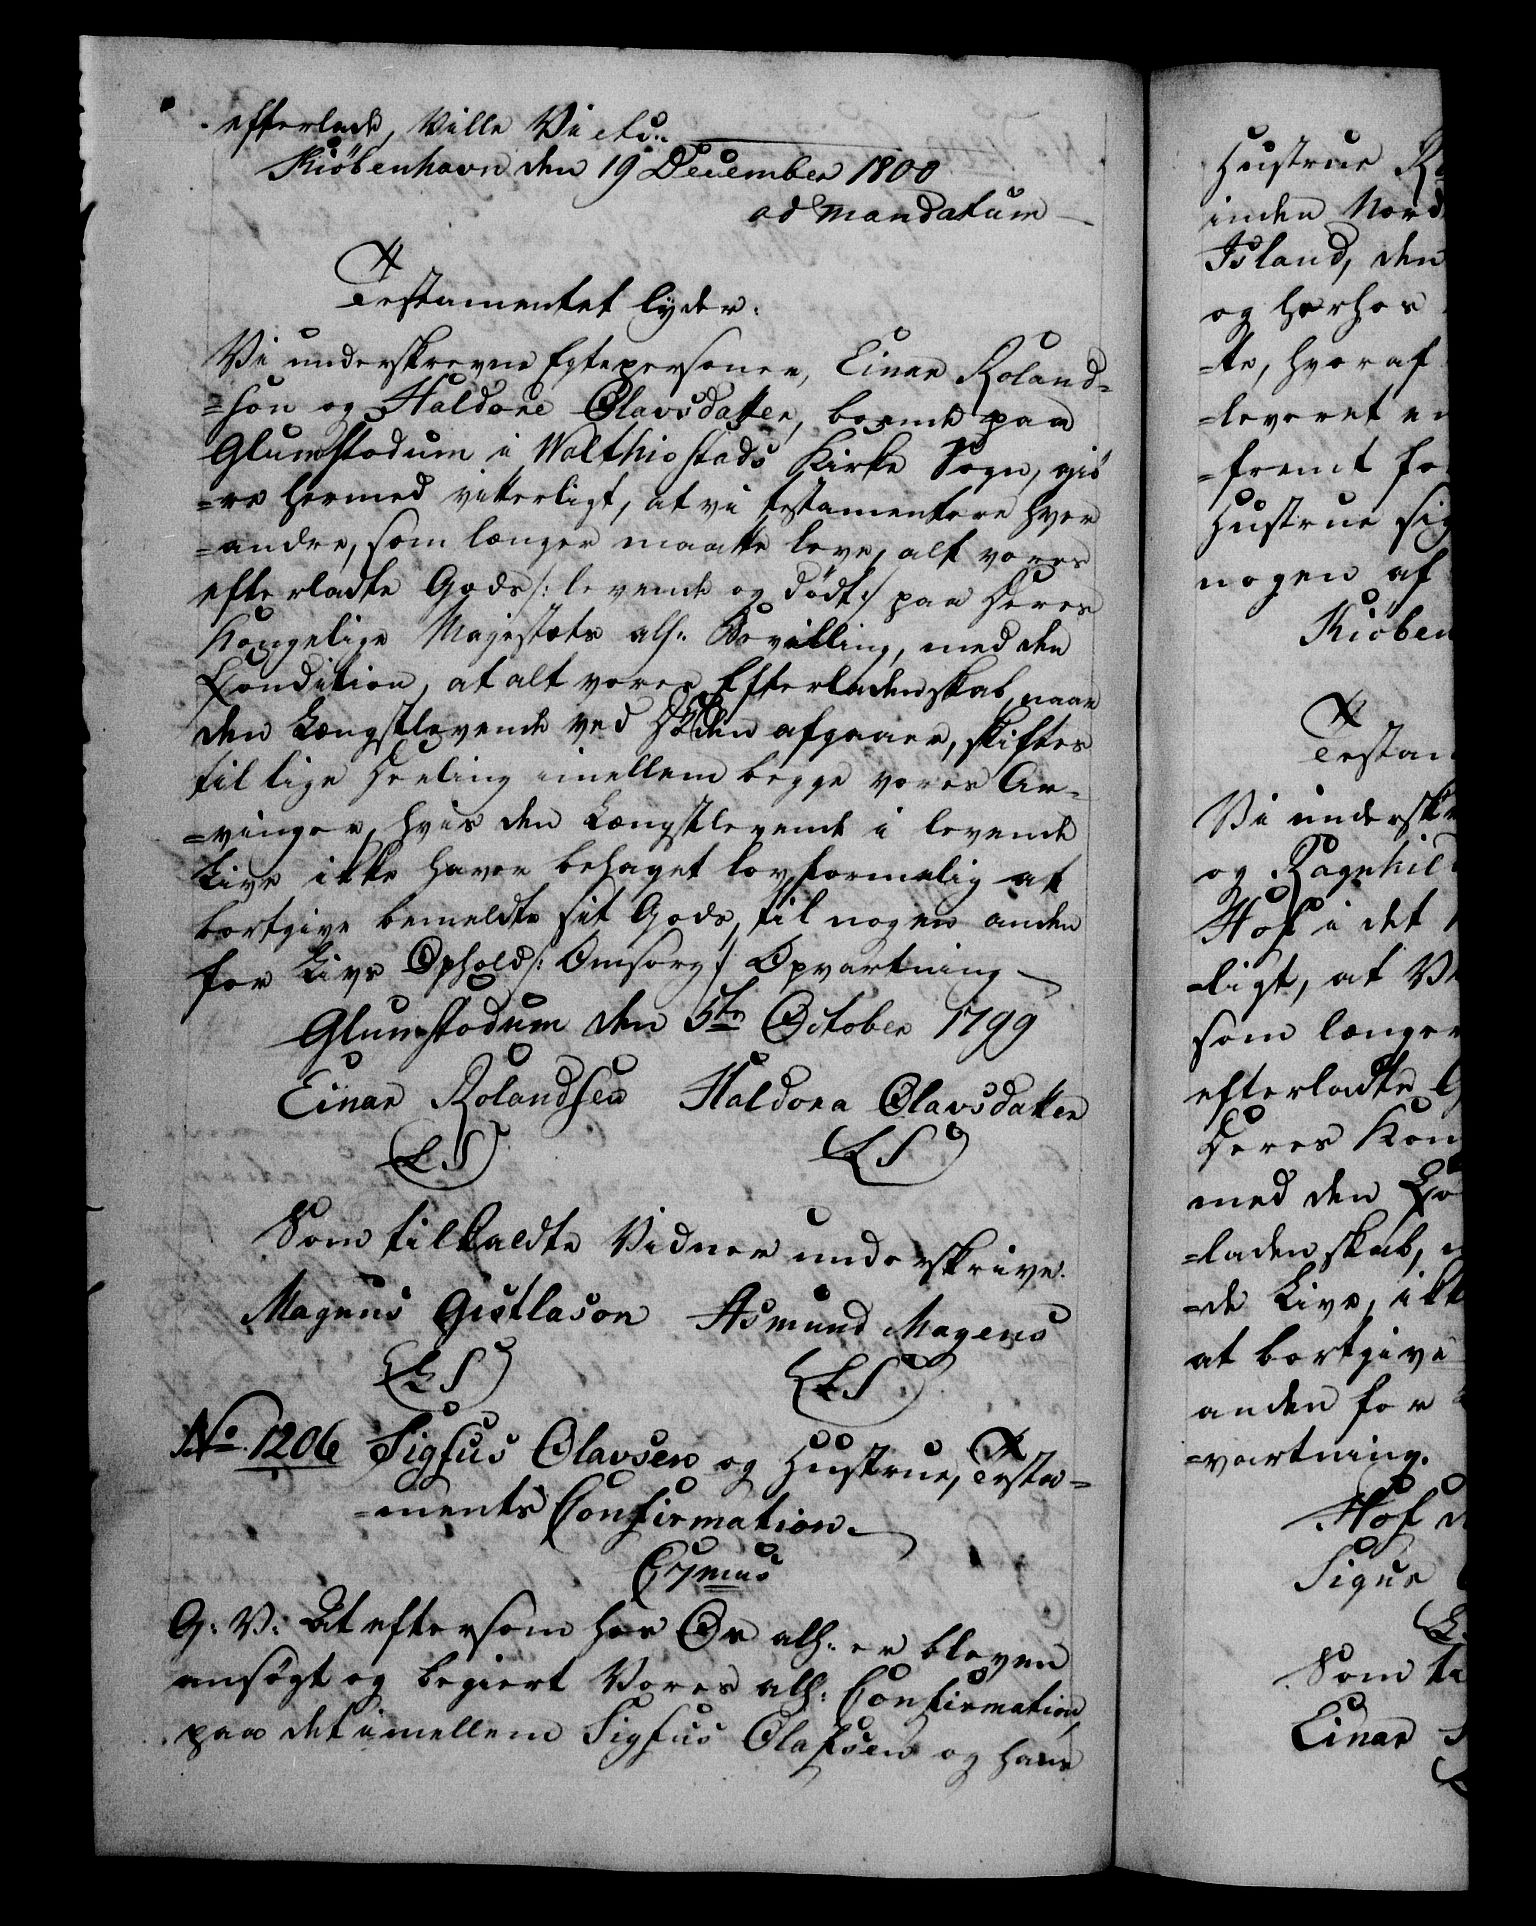 efterlade, Ville Vi etc:
Kiöbenhavn den 19 December 1800
ad mandatum
Testamentet lyder.
Vi underskrevne Egtepersoner, Einar Roland-
=son og Haldore Olavsdatter, boende paa
Glumstodum i Walthiostads Kirke Sogn, giö
=re hermed vitterligt, at vi testamentere hver
=andre, som længer maatte leve, alt vores
efterladte Gods /: levende og dödt :/ paa Deres
Kongelige Majestæts alh: Bevilling, med den
Condition, at alt vores Efterladenskab, naar
den Længstlevende ved Döden afgaaer, skiftes
til lige Deeling imellem begge vores Ar-
=vinger, hvis den Længstlevende i levende
Live ikke haver behaget lovformelig at
bortgive bemeldte sit Gods, til nogen anden
for Livs Ophold /: Omsorg :/ Opvartning
Glumstodum den 5te October 1799
Einar Rolandsen Haldora Olavsdatter
(LS) (LS)
Som tilkaldte Vidner underskrive.
Magnus Gistlason Asmund Magens
(LS) (LS)
No. 1206 Sigfus Olavsen og Hustrue, Testa-
=ments Confirmation.
C7mus
G: V: At eftersom hos Os alh: er bleven
ansögt og begiert Vores alh: Confirmation,
paa det imellem Sigfus Olafsen og hans
Hustrue
inden Nord
Island, den
og herhos
-te, hvoraf
=leveret en
=fremt for
Hustrue sig
nogen af
Kiöben
Testam
Vi underskr
og Ragnhild
Hof i det
=ligt, at Vi
som længer
efterladte G
Deres Kon
med den Co
=ladenskab, n
=de Live, ikk
at bortgive
anden for
=vartning.
Hof d
Sigur
(L
Som ti
Einar S